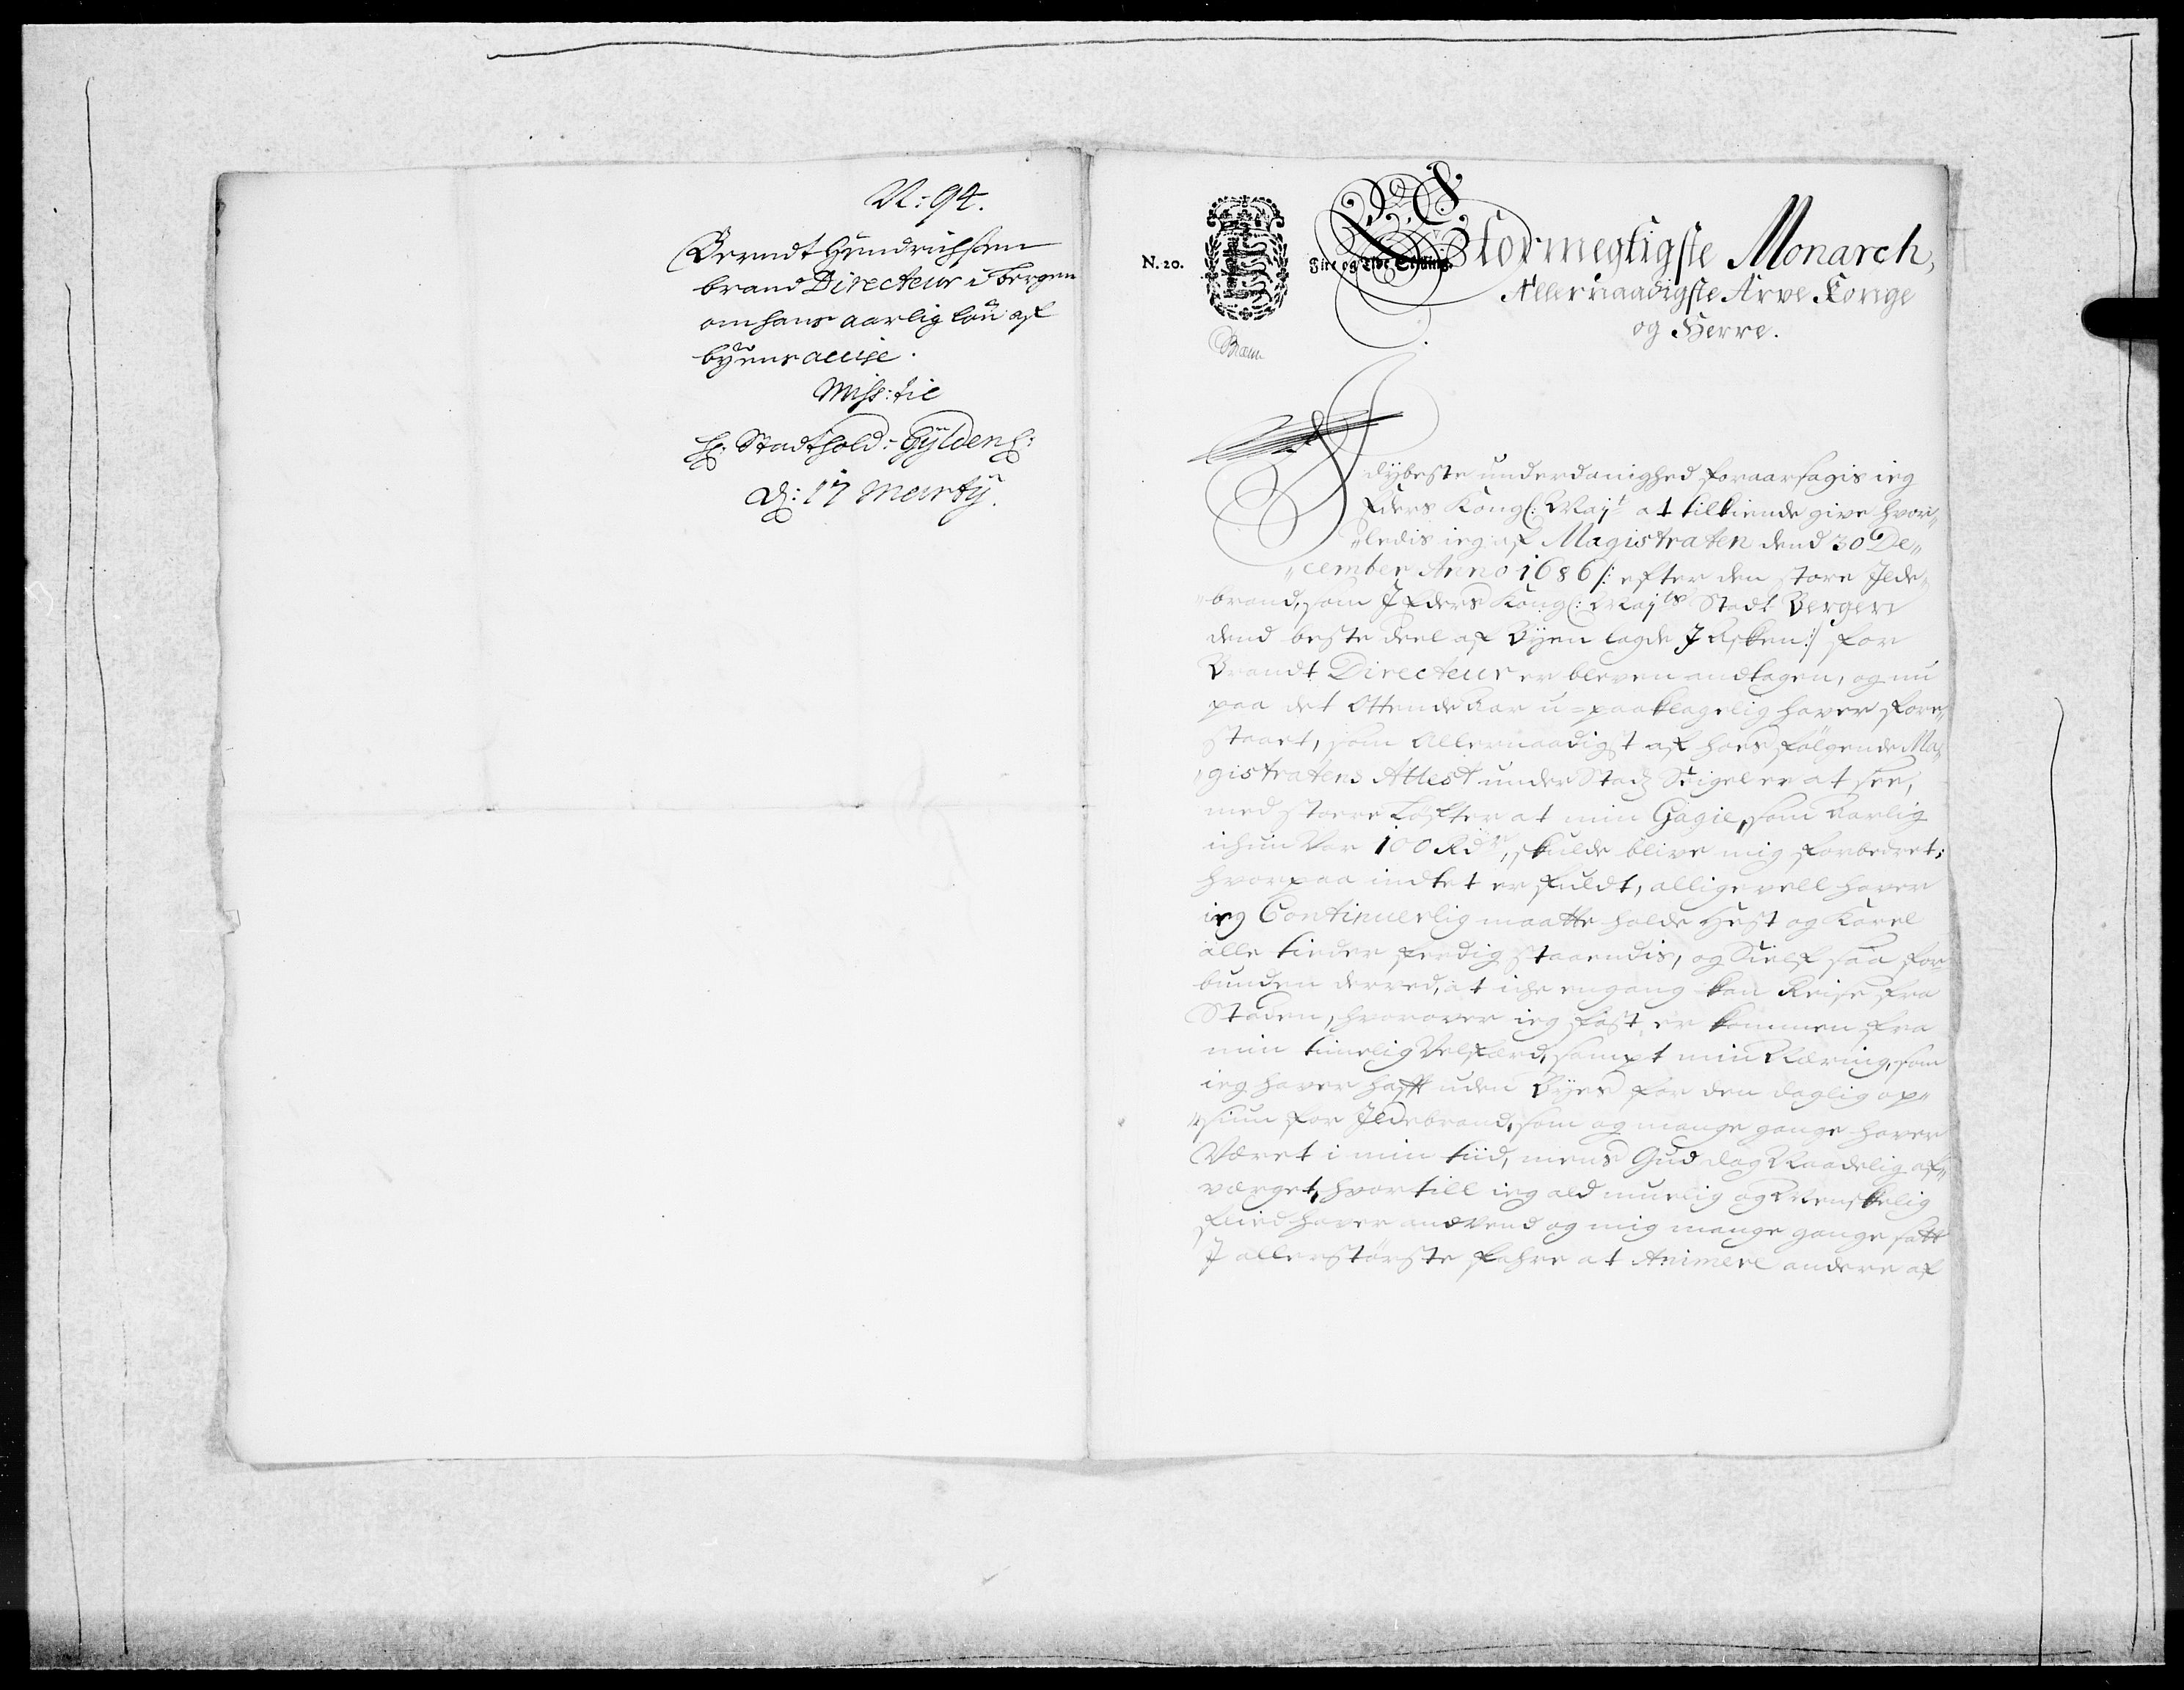 N: 94.
Berendt Hendrichsen
brand Directeur i Bergen
om hans aarlig løn af
byens accise.
Miss: til
H: Stadthold: Gyldenl:
d: 17 Marty.
N. 20.
Fire og Tive Skilling.
Stormegtigste Monarch,
Allernaadigste Arve Konge
og Herre.
I dybeste underdanighed foraarsagis ieg
Eders Kongl: Mayt at tilkiende give hvor„
„ledis ieg af Magistraten dend 30 De„
„cember Anno 1686 /: efter den store Ilde„
„brand, som I Eders Kongl: Mayts Stadt Bergen
dend beste deel af Byen lagde I Asken :/ for
Brandt Directeur er bleven andtagen, og nu
paa det Ottende Aar u-paaklagelig haver fore„
staaet, som Allernaadigst af hoes følgende Ma„
„gistratens Attest under Stadz Seigel er at see,
med stoere Løfter at min Gagie, som aarlig
ichun Var 100 Rdr, skulde blive mig forbedret;
hvorpaa indtet er fuldt, alligevell haver
ieg Continuerlig maatte holde Hest og Karel
alle tider ferdig staaendis, og Sielf saa for„
bunden derved, at iche engang kan Reise fra
Staden, hvorover ieg fast er kommen fra
min timelig Velfærd, sampt min Næring, som
ieg haver hafft uden Byes for den daglig op„
„siun for Ildebrand, som og mange gange haver
Været i min tiid, mens Gud dog Naadelig af„
værget, hvortill ieg ald muelig og Menskelig
flied haver anvend og mig mange gange satt
I allerstørste fahre at Animere andere af